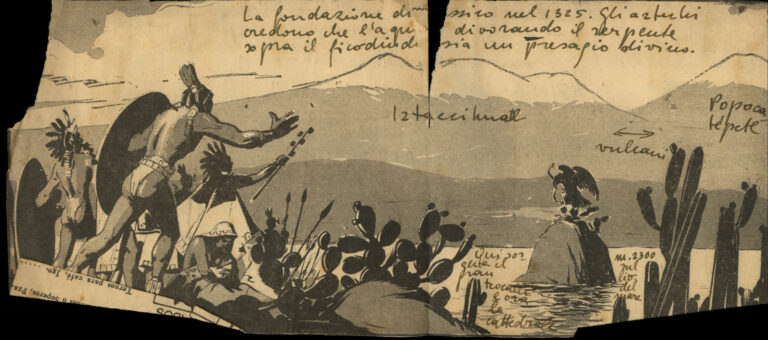 La fondazione di M ssico nel 1325. Gli aztechi
credono che l'aqui divorando il serpente
sopra il ficodindi sia un presagio divino.
Iztaccihuatl
Popoca
tépetl
vulcani
Qui sor
geva il
gran
teocalli
e ora
la
cattedrale
m. 2300
sul
liv.
del
mare
Ternos para café, Jgo.
o Soperos, Pza.